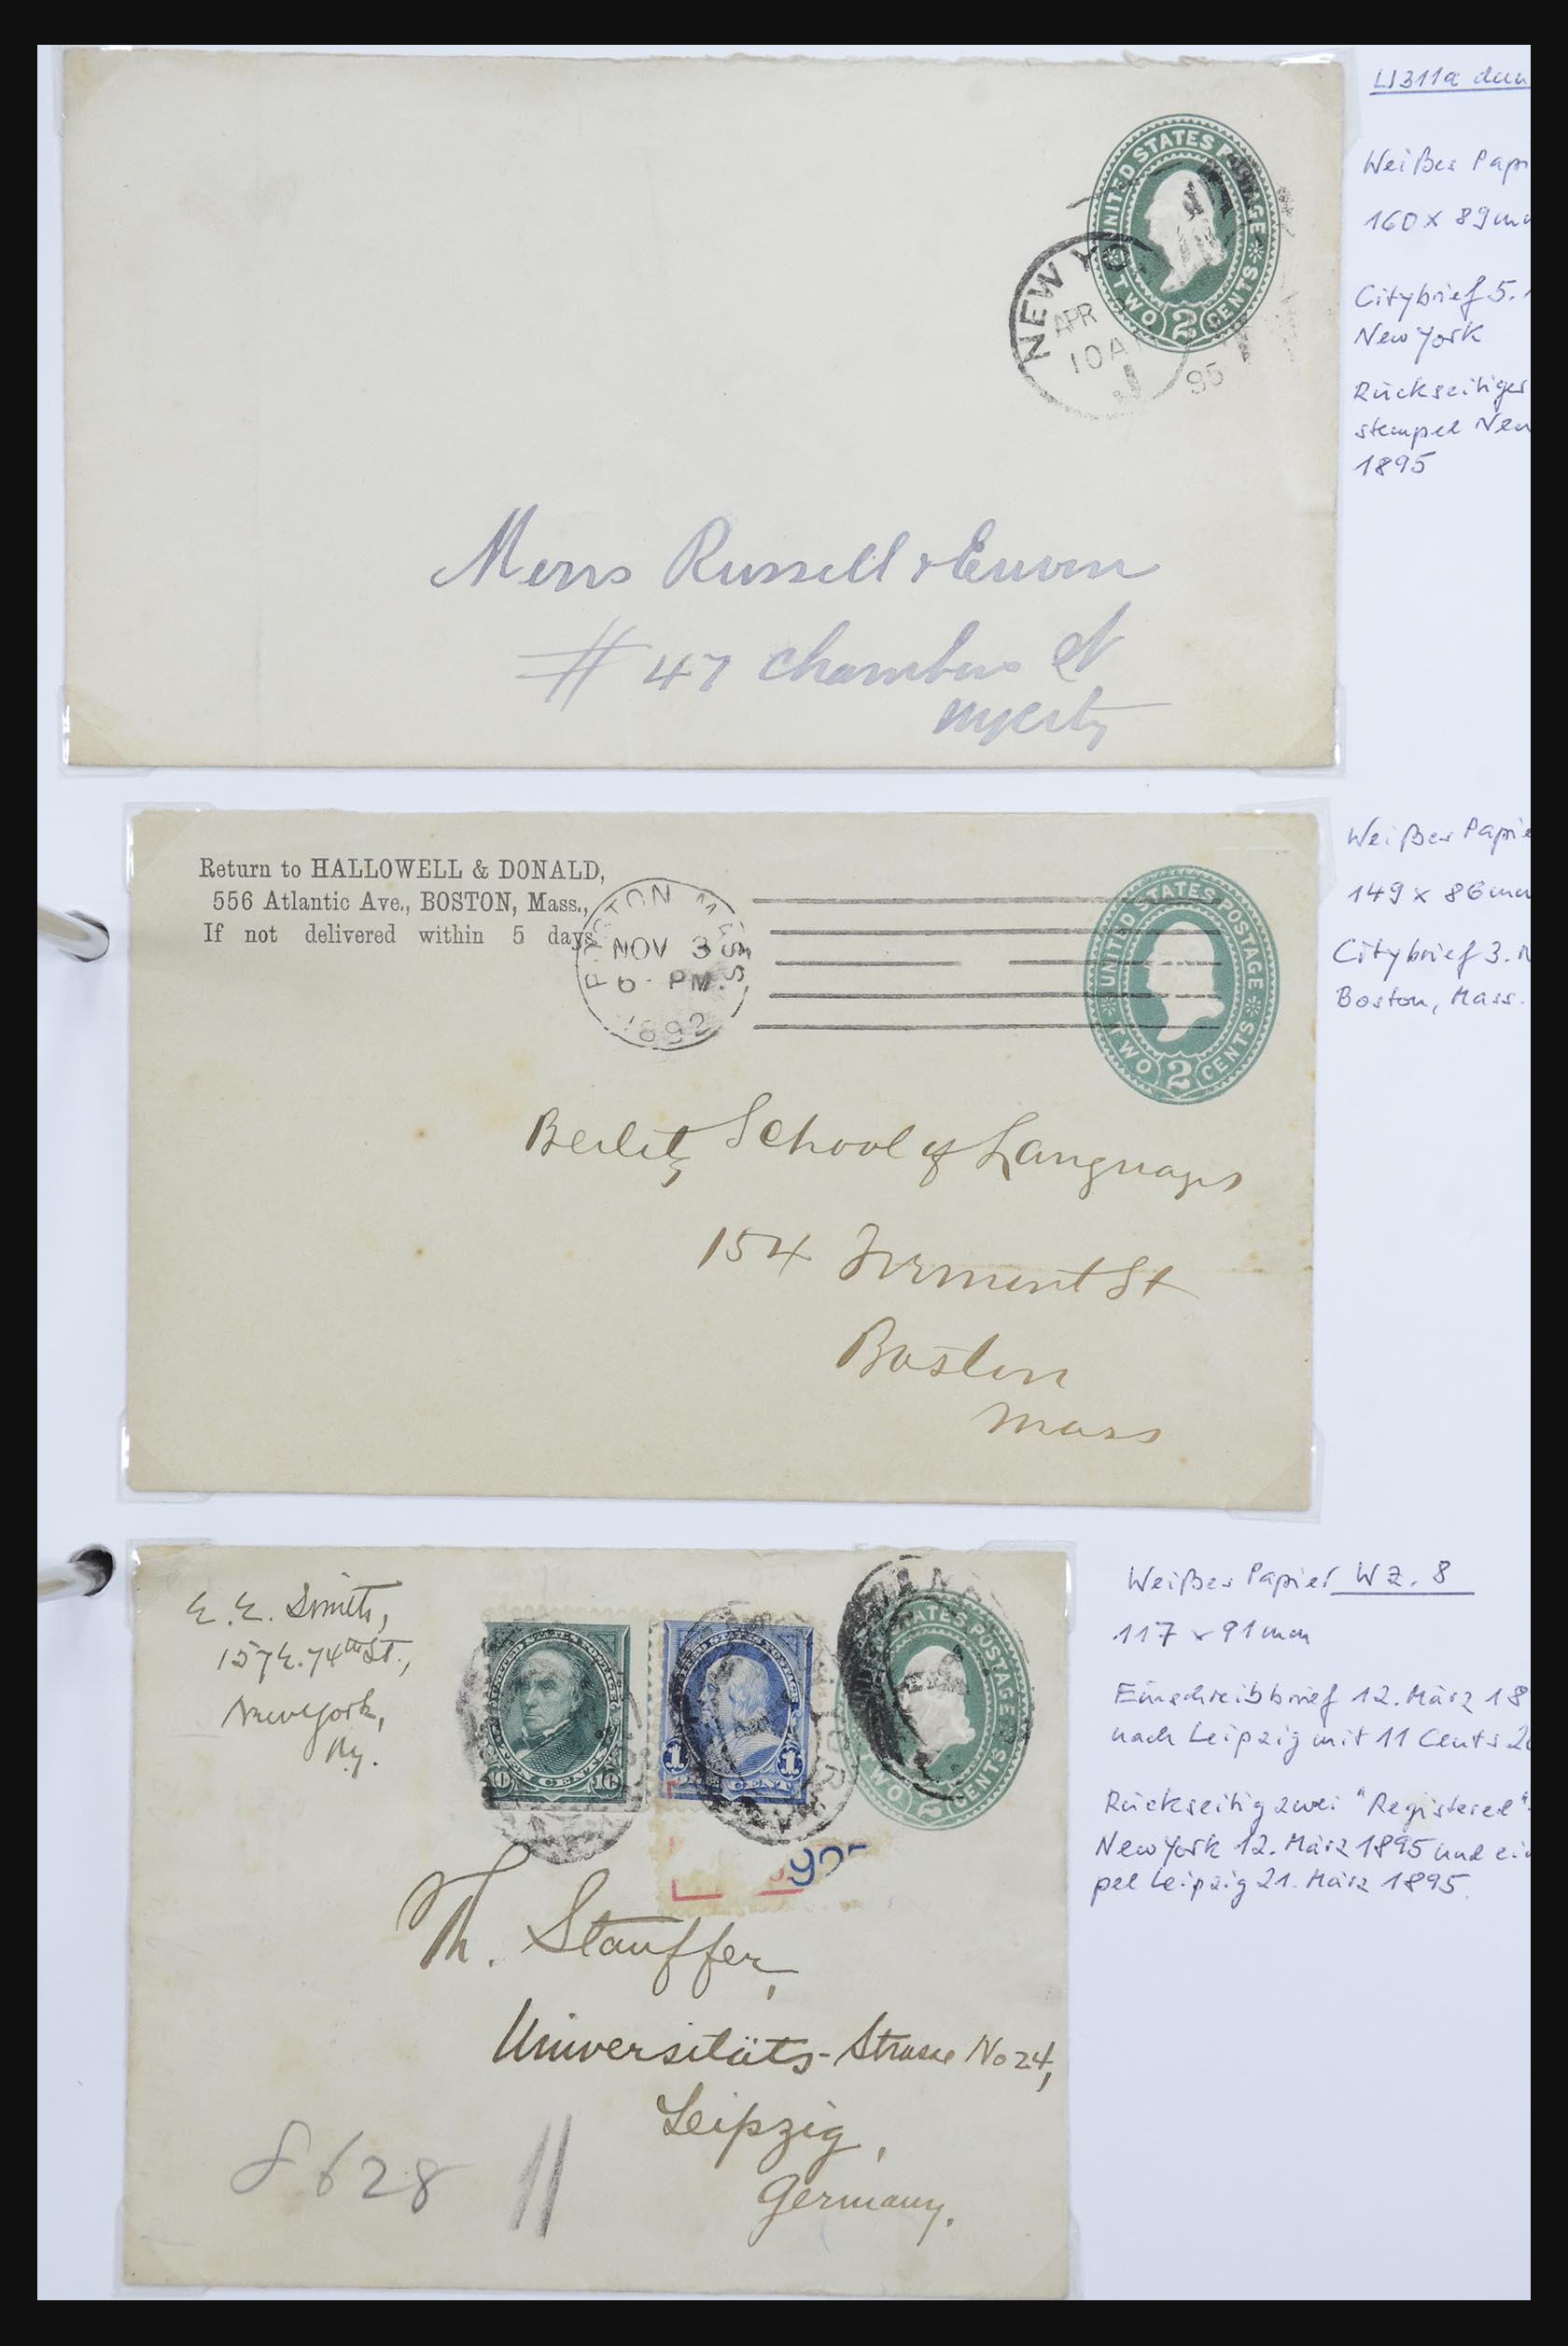 U311a
Weißes
160 x 89
Citybrief 5.
New York
Rückseitiger
stempel
1895
UNITED STATES POSTAGE
TWO 2 CENTS
NEW YO
APR
10 A
95
Messrs Russell & Erwin
# 47 Chambers St
NYCity
Weißes
149 x 86 mm
Citybrief 3.
Boston, Mass.
Return to HALLOWELL & DONALD,
556 Atlantic Ave., BOSTON, Mass.,
If not delivered within 5 days.
BOSTON MASS.
NOV 3
6 - PM.
1892
UNITED STATES POSTAGE
TWO 2 CENTS
Berlitz School of Languages
154 Tremont St
Boston
Mass
Weißes Papier WZ. 8
117 x 91 mm
Einschreibbrief 12. März 18
nach Leipzig mit 11 Cents
Rückseitig zwei "Registered"-
New York 12. März 1895 und
pel Leipzig 21. März 1895.
E. E. Smith,
157 E. 74th St.,
New York,
Ny.
10 TEN CENTS 10
1 ONE CENT 1
STATES POSTAGE
TWO 2 CENTS
Th. Stauffer,
Universitäts-Strasse No 24,
Leipzig,
Germany.
8628 11